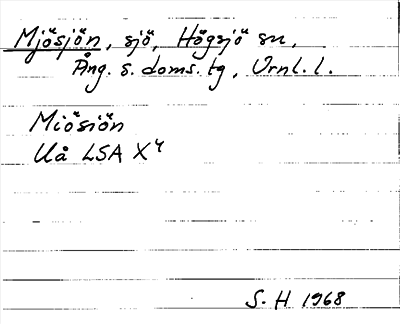 Mjösjön, sjö, Högsjö sn,
Ång. s. doms. tg, Vrnl. l.
Miösiön
Uå LSA X4
S. H 1968